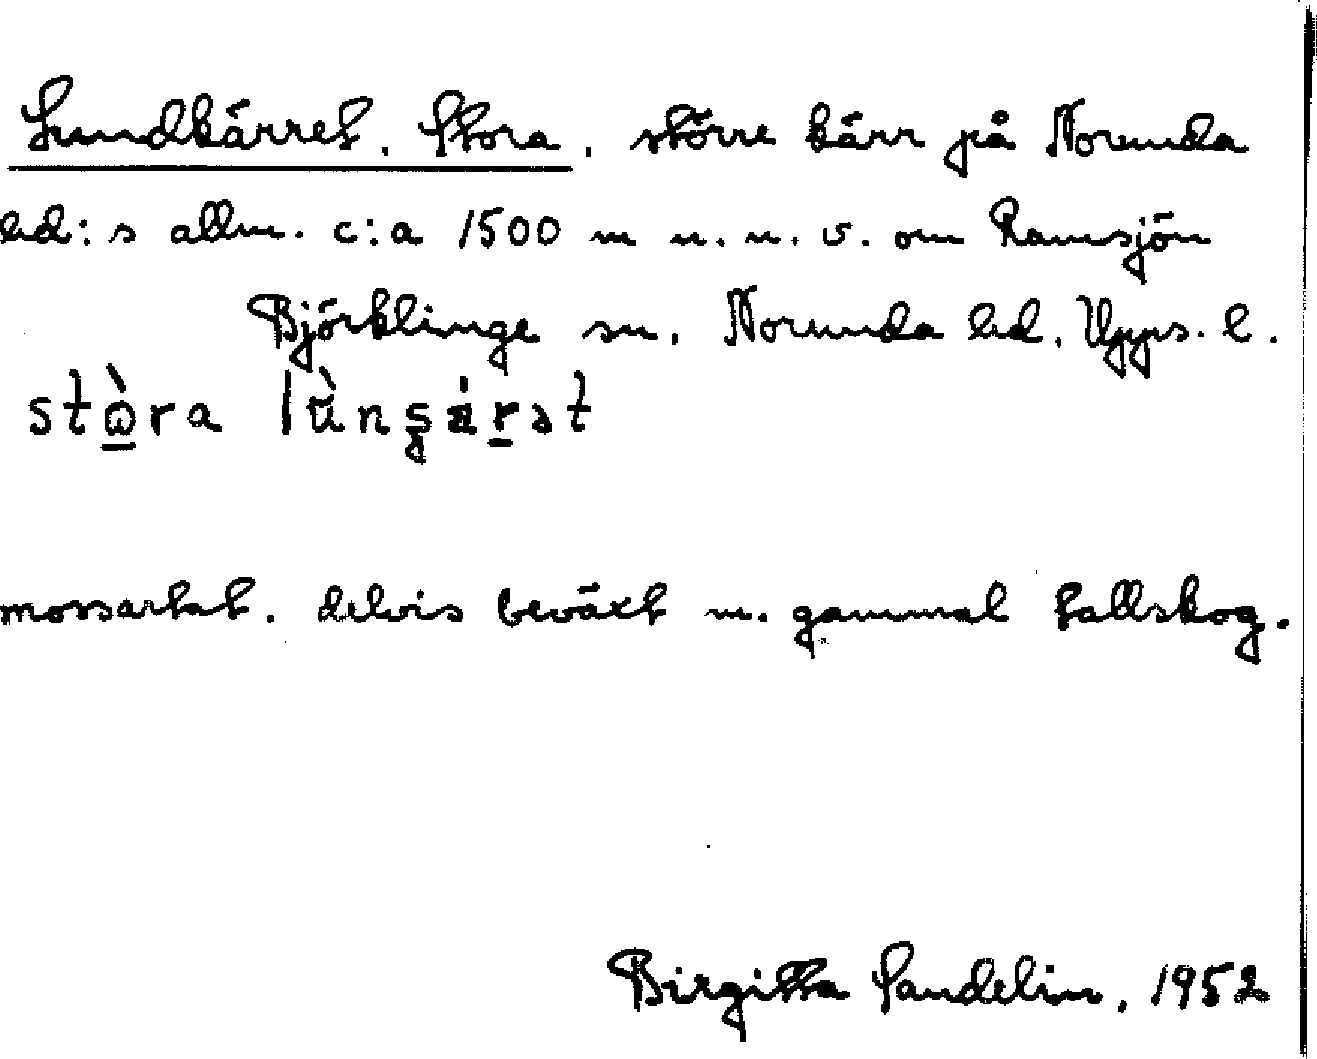 Lundkärret, Stora, större kärr på Norunda
hd:s allm. c:a 1500 m n.n.v. om Ramsjön
Björklinge sn, Norunda hd, Upps. l.
mossartat, delvis beväxt m. gammal tallskog.
Birgitta Sandelin, 1952